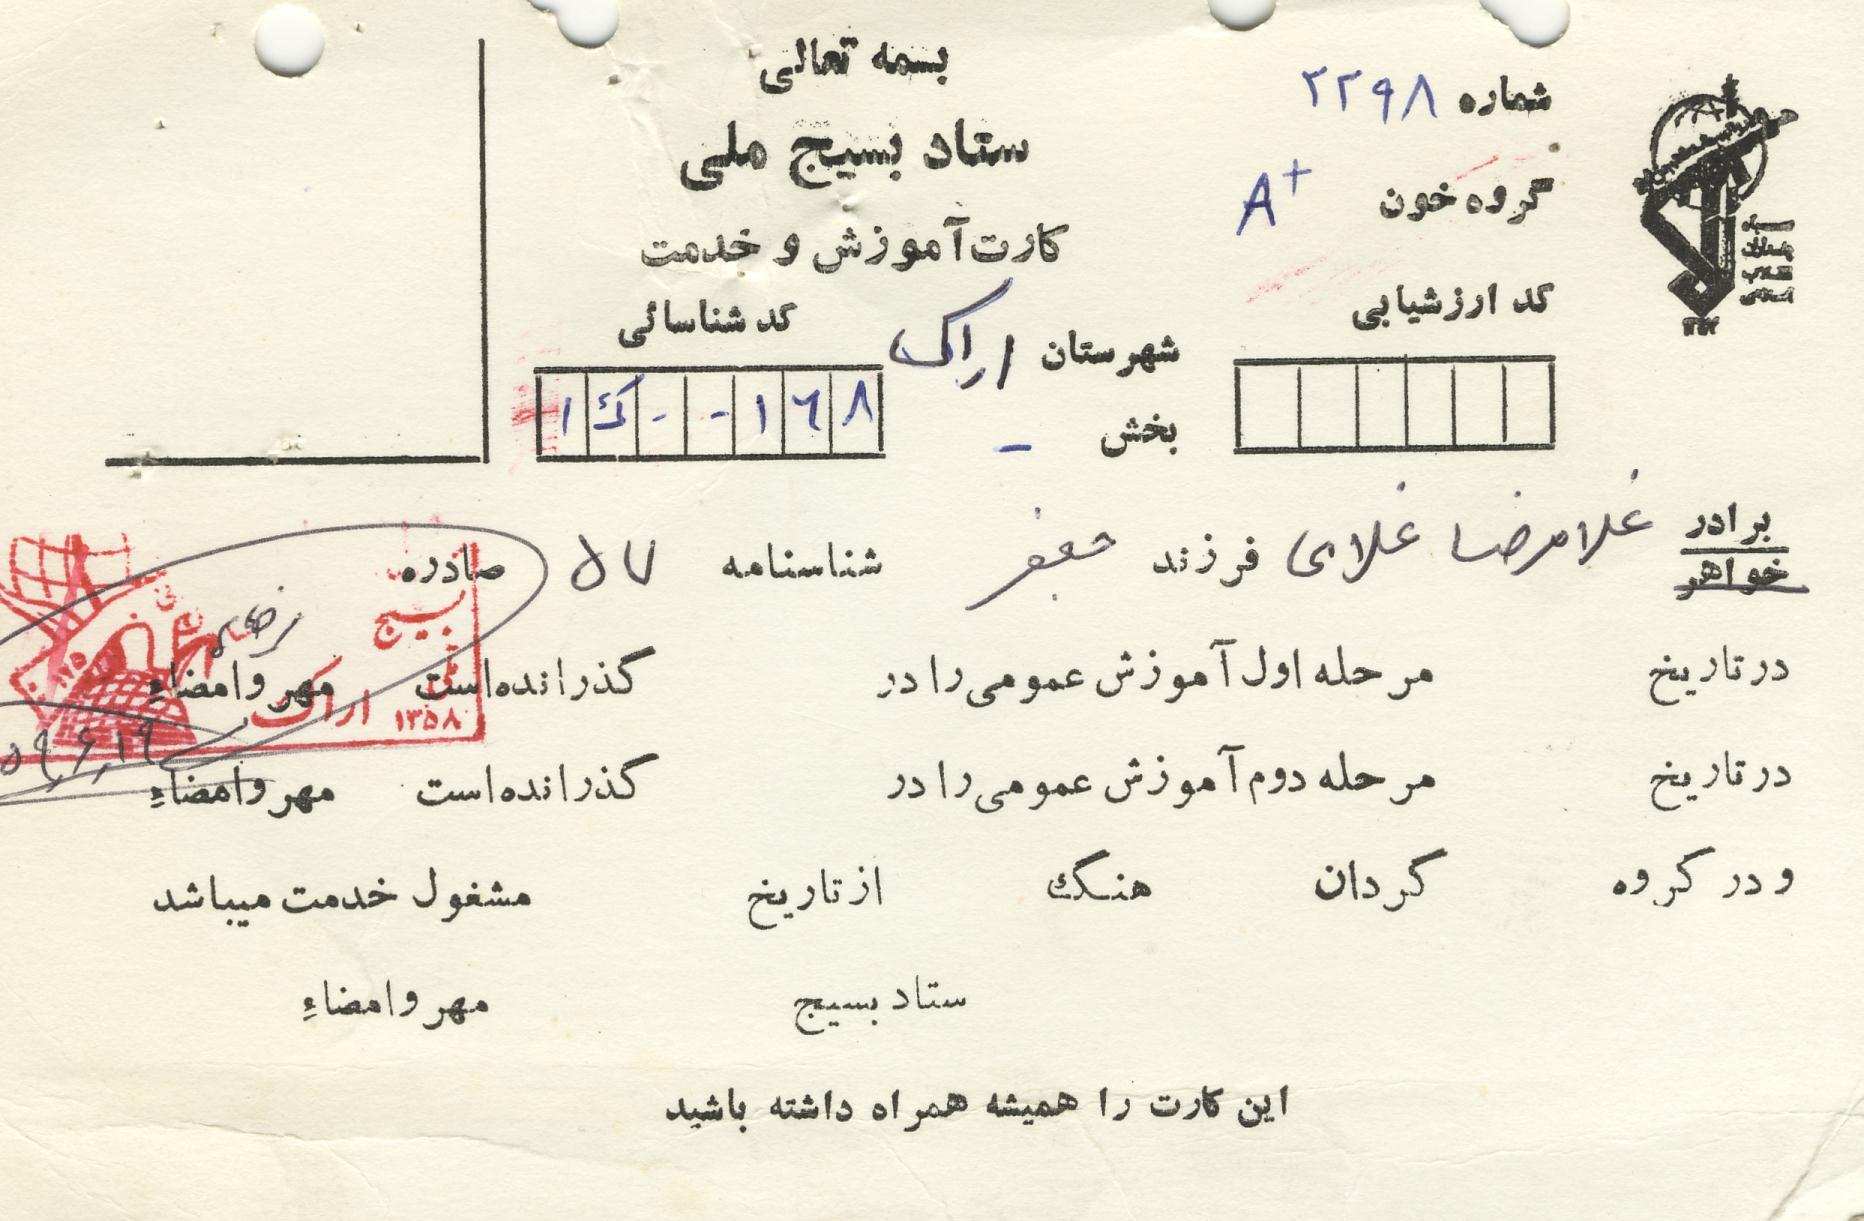 بسمه تعالی
ستاد بسیج ملی
کارت آموزش و خدمت
شماره ۲۲۹۸
گروه خون A+
کد ارزشیابی
سپاه
پاسداران
انقلاب
اسلامی
شهرستان اراک
بخش -
کد شناسائی
۱ ک - - ۱ ۶ ۸
برادر
خواهر
غلامرضا فرزند جعفر شناسنامه ۵۷ صادره
در تاریخ مرحله اول آموزش عمومی را در گذرانده است مهر و امضاء
در تاریخ مرحله دوم آموزش عمومی را در گذرانده است مهر و امضاء
و در گروه گردان هنگ از تاریخ مشغول خدمت میباشد
ستاد بسیج مهر و امضاء
این کارت را همیشه همراه داشته باشید
بسیج
ملی
اراک
۱۳۵۸
۵۹٫۶٫۱۹